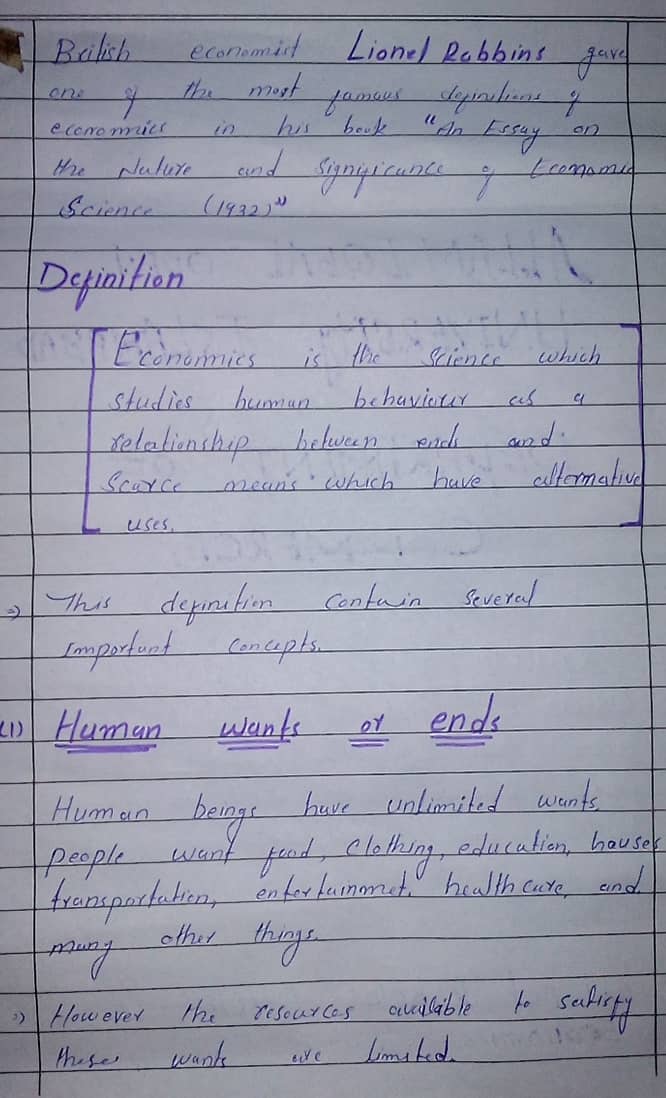 British economist Lionel Robbins gave
one of the most famous definitions of
economics in his book "An Essay on
the Nature and Significance of Economic
Science (1932)"
Definition
Economics is the Science which
studies human behaviour as a
relationship between ends and
Scarce means which have alternative
uses.
⇒ This definition contain several
important concepts.
(1) Human wants or ends
Human beings have unlimited wants.
people want food, clothing, education, houses
transportation, entertainmet, health care, and
many other things.
⇒ However the resources available to satisfy
these wants are limited.